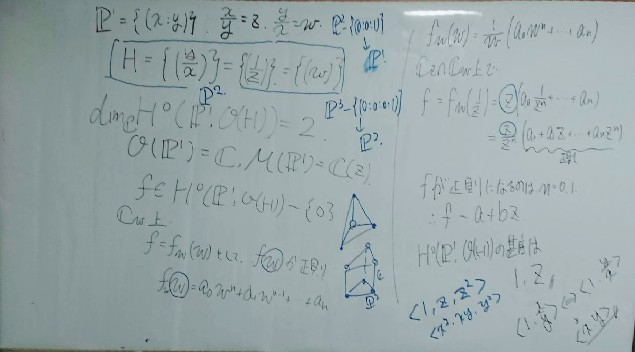 ℙ¹ = {(x:y)}, x/y = z, y/x = w.
ℙ²-{(0:0:1)}
↓
ℙ¹
H = {(y/x)} = {(1/z)} = {(w)}
ℙ²
ℙ³-{(0:0:0:1)}
↓
ℙ²
dim_ℂ H⁰(ℙ¹, O(H)) = 2.
O(ℙ¹) = ℂ, M(ℙ¹) = ℂ(z).
f ∈ H⁰(ℙ¹, O(H)) - {0}
ℂw上
f = f_w(w) として, f が正則
= a₀wⁿ + a₁wⁿ⁻¹ + aₙ
f_w(w) = 1/w (a₀wⁿ + … + aₙ)
ℂz∩ℂw上で
f = f_w(1/z) = z (a₀ 1/zⁿ + … + aₙ)
= z/zⁿ (a₀ + a₁z + … + aₙzⁿ)
正則
f が正則になるのは n=0,1.
∴ f = a+bz
H⁰(ℙ¹, O(H)) の基底は
1, z
<1, z, z²>
<x², xy, y²>